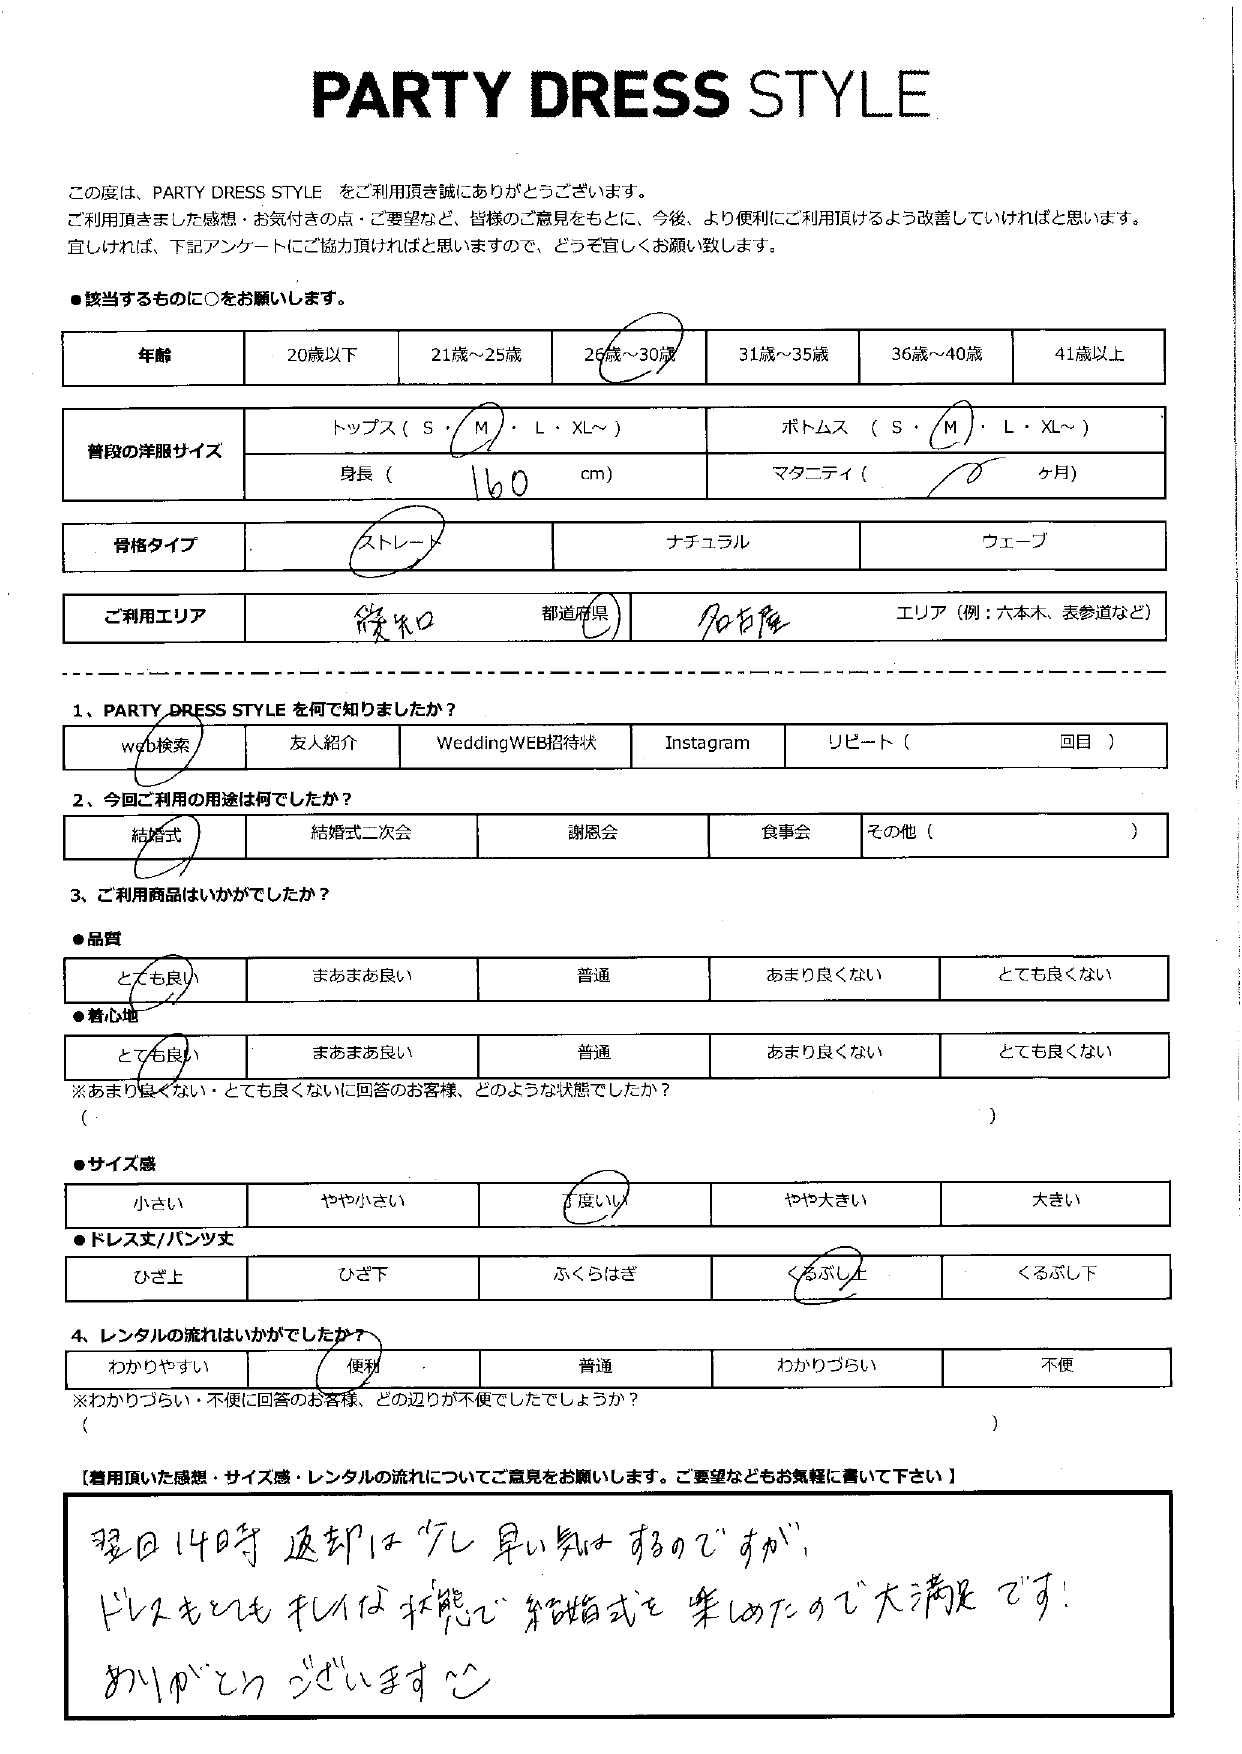 PARTY DRESS STYLE
この度は、PARTY DRESS STYLE をご利用頂き誠にありがとうございます。
ご利用頂きました感想・お気付きの点・ご要望など、皆様のご意見をもとに、今後、より便利にご利用頂けるよう改善していければと思います。
宜しければ、下記アンケートにご協力頂ければと思いますので、どうぞ宜しくお願い致します。
●該当するものに○をお願いします。
年齢 20歳以下 21歳～25歳 26歳～30歳 31歳～35歳 36歳～40歳 41歳以上
普段の洋服サイズ トップス ( S ・ M ・ L ・ XL～ ) ボトムス ( S ・ M ・ L ・ XL～ )
身長 ( 160 cm) マタニティ ( ヶ月)
骨格タイプ ストレート ナチュラル ウェーブ
ご利用エリア 愛知 都道府県 名古屋 エリア（例：六本木、表参道など）
1、PARTY DRESS STYLE を何で知りましたか？
web検索 友人紹介 WeddingWEB招待状 Instagram リピート ( 回目 )
2、今回ご利用の用途は何でしたか？
結婚式 結婚式二次会 謝恩会 食事会 その他 ( )
3、ご利用商品はいかがでしたか？
●品質
とても良い まあまあ良い 普通 あまり良くない とても良くない
●着心地
とても良い まあまあ良い 普通 あまり良くない とても良くない
※あまり良くない・とても良くないに回答のお客様、どのような状態でしたか？
( )
●サイズ感
小さい やや小さい 丁度いい やや大きい 大きい
●ドレス丈/パンツ丈
ひざ上 ひざ下 ふくらはぎ くるぶし上 くるぶし下
4、レンタルの流れはいかがでしたか？
わかりやすい 便利 普通 わかりづらい 不便
※わかりづらい・不便に回答のお客様、どの辺りが不便でしたでしょうか？
( )
【着用頂いた感想・サイズ感・レンタルの流れについてご意見をお願いします。ご要望などもお気軽に書いて下さい 】
翌日14時 返却は少し早い気はするのですが、
ドレスもとてもキレイな状態で結婚式を楽しめたので大満足です！
ありがとうございます